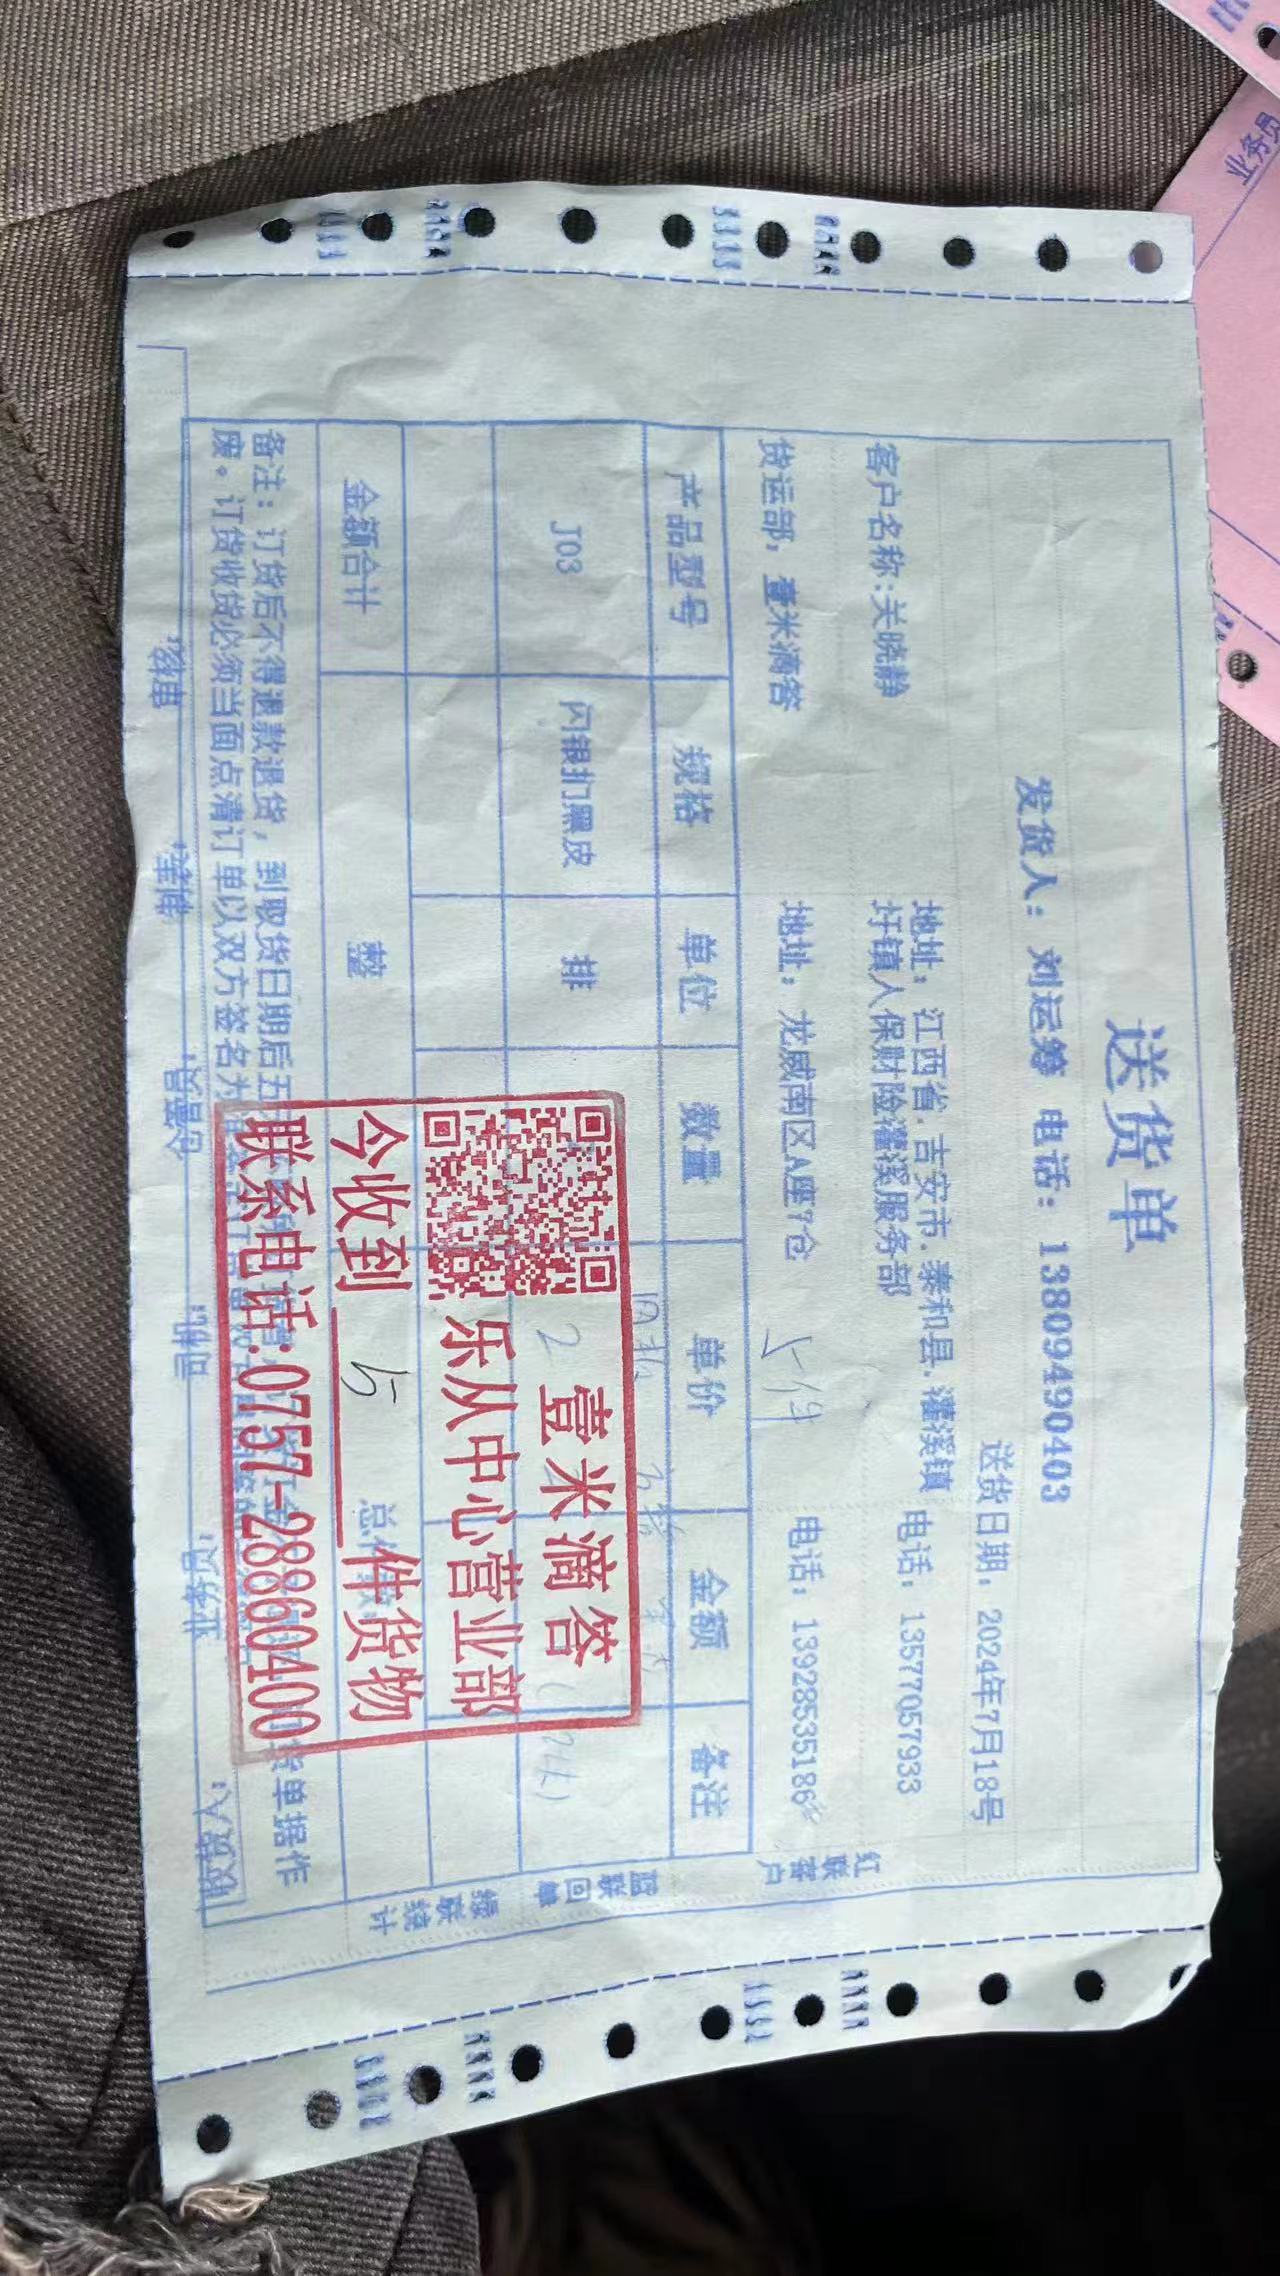 送货单
发货人：刘运筹 电话：13809490403
送货日期：2024年7月18号
客户名称:关晓静 地址：江西省.吉安市.泰和县.灌溪镇圩镇人保财险灌溪服务部 电话：13577057933
货运部：壹米滴答 地址：龙威南区A座7仓 电话：13928535186
5件
产品型号 规格 单位 数量 单价 金额 备注
J03 闪银扪黑皮 排 2
金额合计 整
备注：订货后不得退款退货，到取货日期后五
货单据作
废。订货收货必须当面点清订单以双方签名为
仓管员: 司机: 业务员: 收货人:
红联客户
蓝联回单
绿联统计
壹米滴答
乐从中心营业部
今收到 5 件货物
联系电话:0757-28860400
业务员